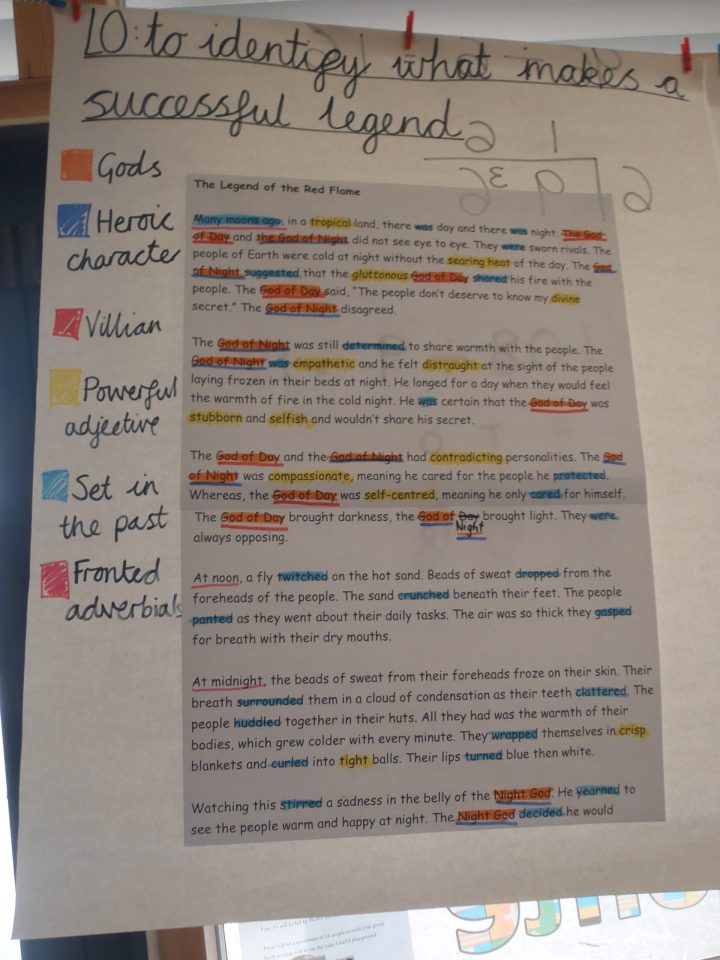 LO: to identify what makes a
successful legend
Gods
Heroic
character
Villian
Powerful
adjective
Set in
the past
Fronted
adverbials
The Legend of the Red Flame
Many moons ago, in a tropical land, there was day and there was night. The God
of Day and the God of Night did not see eye to eye. They were sworn rivals. The
people of Earth were cold at night without the searing heat of the day. The God
of Night suggested that the gluttonous God of Day shared his fire with the
people. The God of Day said, "The people don't deserve to know my divine
secret." The God of Night disagreed.
The God of Night was still determined to share warmth with the people. The
God of Night was empathetic and he felt distraught at the sight of the people
laying frozen in their beds at night. He longed for a day when they would feel
the warmth of fire in the cold night. He was certain that the God of Day was
stubborn and selfish and wouldn't share his secret.
The God of Day and the God of Night had contradicting personalities. The God
of Night was compassionate, meaning he cared for the people he protected.
Whereas, the God of Day was self-centred, meaning he only cared for himself.
The God of Day brought darkness, the God of Day Night brought light. They were
always opposing.
At noon, a fly twitched on the hot sand. Beads of sweat dropped from the
foreheads of the people. The sand crunched beneath their feet. The people
panted as they went about their daily tasks. The air was so thick they gasped
for breath with their dry mouths.
At midnight, the beads of sweat from their foreheads froze on their skin. Their
breath surrounded them in a cloud of condensation as their teeth clattered. The
people huddled together in their huts. All they had was the warmth of their
bodies, which grew colder with every minute. They wrapped themselves in crisp
blankets and curled into tight balls. Their lips turned blue then white.
Watching this stirred a sadness in the belly of the Night God. He yearned to
see the people warm and happy at night. The Night God decided he would